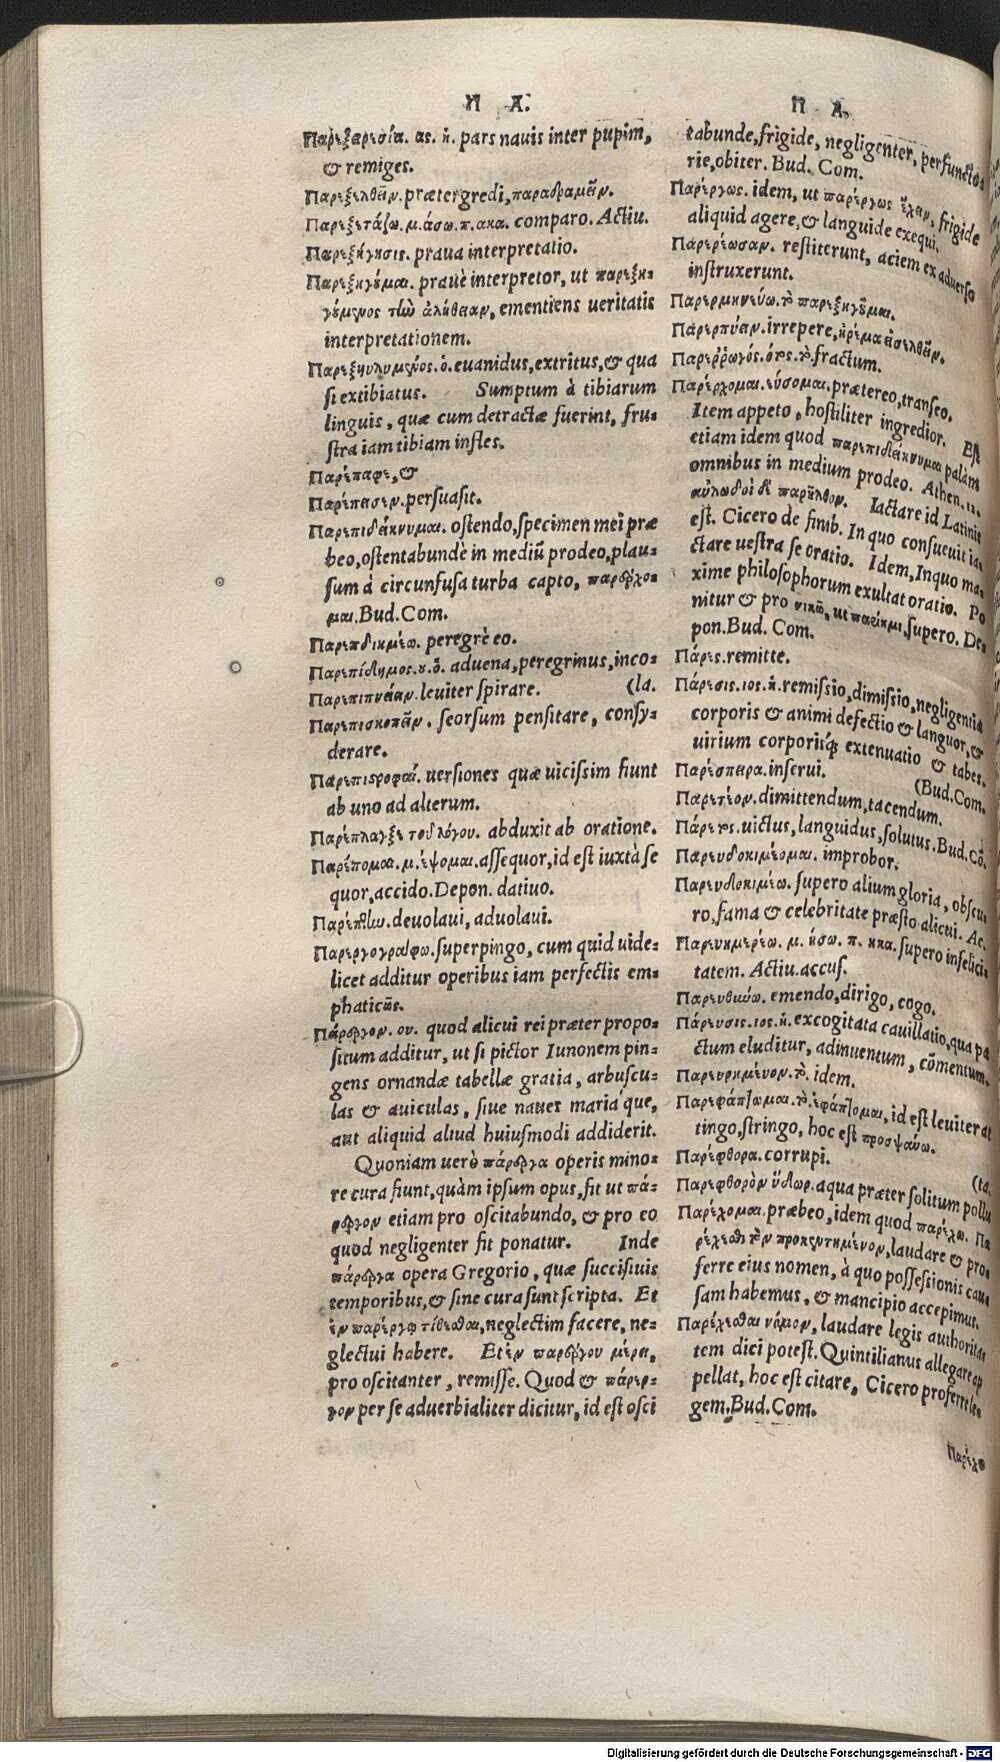 Π Α.
Παρεξειρεσία. ας. ἡ. pars nauis inter pupim,
& remiges.
Παρεξελθεῖν. prætergredi, παραδραμεῖν.
Παρεξετάζω. μ. άσω. π. ακα. comparo. Actiu.
Παρεξήγησις. praua interpretatio.
Παρεξηγοῦμαι. prauè interpretor, ut παρεξη-
γούμενος τὴν ἀλήθειαν, ementiens ueritatis
interpretationem.
Παρεξηυλημένος. ὁ. euanidus, extritus, & qua
si extibiatus. Sumptum à tibiarum
linguis, quæ cum detractæ fuerint, fru-
stra iam tibiam infles.
Παρέπαφε, &
Παρέπεισεν. persuasit.
Παρεπιδείκνυμαι. ostendo, specimen mei præ
beo, ostentabundè in mediũ prodeo, plau-
sum à circunfusa turba capto, παρέρχο-
μαι. Bud. Com.
Παρεπιδημέω. peregrè eo.
Παρεπίδημος. ου. ὁ. aduena, peregrinus, inco-
Παρεπιπνέειν. leuiter spirare. (la.
Παρεπισκοπεῖν. seorsum pensitare, consy-
derare.
Παρεπιστροφαί. uersiones quæ uicissim fiunt
ab uno ad alterum.
Παρέπλαγξε τοῦ λόγου. abduxit ab oratione.
Παρέπομαι. μ. έψομαι. assequor, id est iuxtà se
quor, accido. Depon. datiuo.
Παρέπτην. deuolaui, aduolaui.
Παρεργογραφω. superpingo, cum quid uide-
licet additur operibus iam perfectis em-
phaticῶς.
Πάρεργον. ου. quod alicui rei præter propo-
situm additur, ut si pictor Iunonem pin-
gens ornandæ tabellæ gratia, arbuscu-
las & auiculas, siue naues maria´que,
aut aliquid aliud huiusmodi addiderit.
Quoniam uerò πάρεργα operis mino-
re cura fiunt, quàm ipsum opus, fit ut πά-
ρεργον etiam pro oscitabundo, & pro eo
quod negligenter fit ponatur. Inde
πάρεργα opera Gregorio, quæ succisiuis
temporibus, & sine cura sunt scripta. Et
ἐν παρέργῳ τίθεσθαι, neglectim facere, ne-
glectui habere. Et ἐν παρέργου μέρει,
pro oscitanter, remisse. Quod & πάρερ-
γον per se aduerbialiter dicitur, id est osci
Π Α.
tabunde, frigide, negligenter, perfuncto-
rie, obiter. Bud. Com.
Παρέργως. idem, ut παρέργως ἔχειν, frigide
aliquid agere, & languide exequi.
Παρερέωσαν. restiterunt, aciem ex aduerso
instruxerunt.
Παρερμηνεύω. τὸ παρεξηγοῦμαι.
Παρέρπύειν. irrepere, ἠρέμα εἰσελθεῖν.
Παρεῤῥωγός. ότος. τὸ. fractum.
Παρέρχομαι. εύσομαι. prætereo, transeo.
Item appeto, hostiliter ingredior. Est
etiam idem quod παρεπιδείκνυμαι palàm
omnibus in medium prodeo. Athen. 12.
αὐλωδοὶ δὲ παρῆλθον. Iactare id Latinis
est. Cicero de finib. In quo consueuit ia-
ctare uestra se oratio. Idem, Inquo ma-
xime philosophorum exultat oratio. Po
nitur & pro νικῶ, ut παρίημι, supero. De-
pon. Bud. Com.
Πάρες. remitte.
Πάρεσις. ιος. ἡ. remissio, dimissio, negligentia
corporis & animi defectio & languor, &
uirium corporisq́; extenuatio & tabes.
Παρέσπειρα. inserui. (Bud. Com.
Παρετέον. dimittendum, tacendum.
Πάρετος. uictus, languidus, solutus. Bud. Cō.
Παρευδοκιμέομαι. improbor.
Παρευδοκιμέω. supero alium gloria, obscu-
ro, fama & celebritate præsto alicui. Ac.
Παρευημερέω. μ. ήσω. π. ηκα. supero in felici-
tatem. Actiu. accus.
Παρευθύνω. emendo, dirigo, cogo.
Παρευσις. ιος. ἡ. excogitata cauillatio, qua pa
ctum eluditur, adinuentum, cōmentum.
Παρευρημένον. τὸ. idem.
Παρεφάπτομαι. τὸ. ἐφάπτομαι, id est leuiter at
tingo, stringo, hoc est προσψαύω.
Παρέφθορα. corrupi.
(ta.
Παρεφθορὸν ὕδωρ. aqua præter solitum pollu
Παρέχομαι. præbeo, idem quod παρέχω. Πα
ρέχεσθαι τὸν προκεκτημένον, laudare & pro-
ferre eius nomen, à quo possessionis cau-
sam habemus, & mancipio accepimus.
Παρέχεσθαι νόμον, laudare legis authorita-
tem dici potest. Quintilianus allegare ap
pellat, hoc est citare, Cicero proferre le-
gem. Bud. Com.
Παρέχω
Digitalisierung gefördert durch die Deutsche Forschungsgemeinschaft - DFG